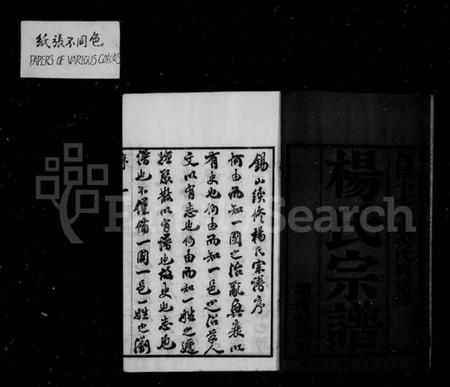 紙張不同色
PAPERS OF VARIOUS COLORS
錫山續修楊氏宗譜序
何由而知一國之治亂興衰以
有史也何由而知一邑之沿革人
文以有志也何由而知一姓之遷
徙聚散以有譜也故史也志也
譜也不僅備一國一邑一姓之瀏
序 一
楊氏宗譜